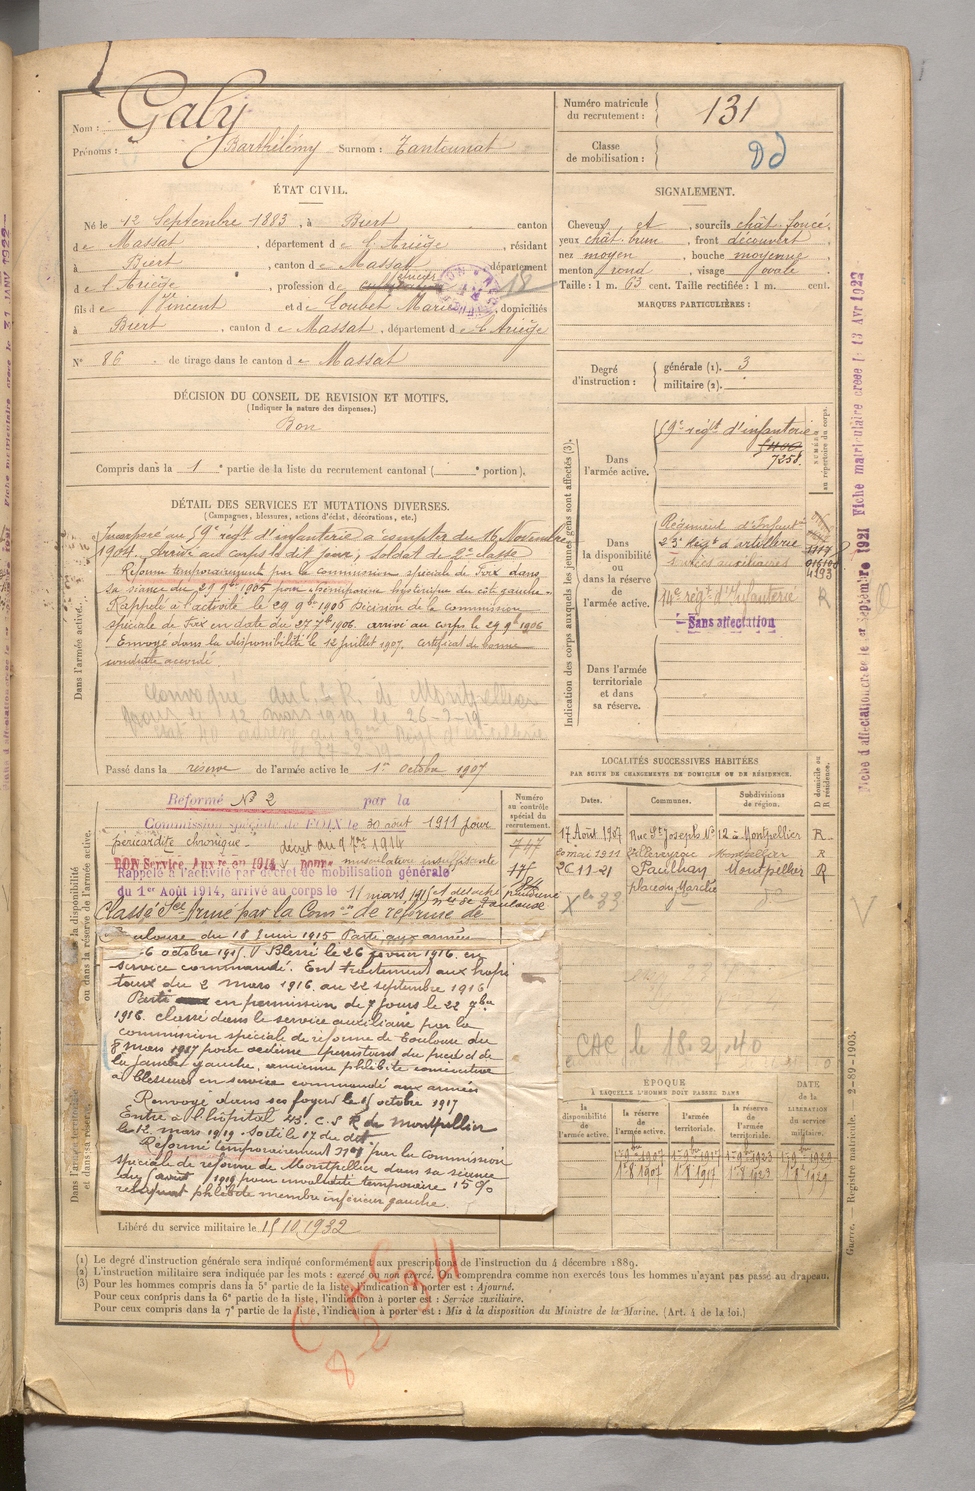 Nom : Galy
Prénoms : Barthélémy Surnom : Tantounat
Numéro matricule du recrutement : 131
Classe de mobilisation :
ÉTAT CIVIL.
Né le 12 Septembre 1883, à Biert, canton
de Massat, département de l'Ariège, résidant
à Biert, canton de Massat, département
de l'Ariège, profession de
fils de Vincent et de Loubet Marie, domiciliés
à Biert, canton de Massat, département de l'Ariège
N° 86 de tirage dans le canton de Massat
SIGNALEMENT.
Cheveux et, sourcils chât. foncé,
yeux chât. brun, front découvert,
nez moyen, bouche moyenne,
menton rond, visage ovale
Taille : 1 m. 63 cent. Taille rectifiée : 1 m. cent.
MARQUES PARTICULIÈRES :
Degré d'instruction : générale (1). 3
militaire (2).
DÉCISION DU CONSEIL DE REVISION ET MOTIFS.
(Indiquer la nature des dispenses.)
Bon
Compris dans la 1e partie de la liste du recrutement cantonal ( e portion).
DÉTAIL DES SERVICES ET MUTATIONS DIVERSES.
(Campagnes, blessures, actions d'éclat, décorations, etc.)
Dans l'armée active.
Incorporé au 59e régt d'infanterie à compter du 16 Novembre
1904. Arrivé au corps le dit jour, soldat de 2e classe
Réformé temporairement par la commission spéciale de Foix dans
sa séance du 29 9bre 1905 pour
Rappelé à l'activité le 29 9bre 1906 Décision de la commission
spéciale de Foix en date du 27 7bre 1906. arrivé au corps le 29 9bre 1906
Envoyé dans la disponibilité le 12 juillet 1907, certificat de bonne
conduite accordé.
Convoqué au C.S.R. de Montpellier
Passé dans la réserve de l'armée active le 1er octobre 1907
Indication des corps auxquels les jeunes gens sont affectés (3).
NUMÉRO au répertoire du corps.
Dans l'armée active.
59e régt d'infanterie
7258
Dans la disponibilité ou dans la réserve de l'armée active.
Régiment d'Infantie
23e Régt d'artillerie
14e régt d'Infanterie
Sans affectation
Dans l'armée territoriale et dans sa réserve.
LOCALITÉS SUCCESSIVES HABITÉES
PAR SUITE DE CHANGEMENTS DE DOMICILE OU DE RÉSIDENCE.
Dates. Communes. Subdivisions de région. D domicile ou R résidence.
17 Août 1907 Rue St Joseph N° 12 à Montpellier R
20 mai 1911 Montpellier R
26-11-21 Paulhan Montpellier R
CAC le 18.2.40
Numéro au contrôle spécial du recrutement.
747
Dans la disponibilité ou dans la réserve de l'armée active.
Réformé N° 2 par la
Commission spéciale de FOIX le 30 août 1911 pour
péricardite chronique. décret du 9 7bre 1914
BON Service Auxre en 1914 pour musculation insuffisante
Rappelé à l'activité par décret de mobilisation générale
du 1er Août 1914, arrivé au corps le 11 mars 1915
Classé Sce Armé par la Comon de réforme de
Toulouse du 18 Juin 1915 Parti aux armées
6 octobre 1915. Blessé le 26 février 1916. en
service commandé. En traitement aux hopi
taux du 2 mars 1916 au 22 septembre 1916
Parti en permission de 7 jours le 22 7bre
1916. classé dans le service auxiliaire par la
commission spéciale de réforme de Toulouse du
8 mars 1917 pour œdème persistant du pied et de
la jambe gauche, ancienne phlébite consécutive
à blessures en service commandé aux armées
Renvoyé dans ses foyers le 15 octobre 1917
Entré à l'hôpital 43. C.S.R de Montpellier
le 12 mars 1919. Sorti le 17 du dit
Réformé temporairement par la Commission
spéciale de réforme de Montpellier dans sa séance
du août 1919 pour invalidité temporaire 15 %
reliquat phlébite membre inférieur gauche.
Libéré du service militaire le 15 10 1932
ÉPOQUE
À LAQUELLE L'HOMME DOIT PASSER DANS
la disponibilité de l'armée active. la réserve de l'armée active. l'armée territoriale. la réserve de l'armée territoriale.
DATE DE LA LIBÉRATION du service militaire.
(1) Le degré d'instruction générale sera indiqué conformément aux prescriptions de l'instruction du 4 décembre 1889.
(2) L'instruction militaire sera indiquée par les mots : exercé ou non exercé. On comprendra comme non exercés tous les hommes n'ayant pas passé au drapeau.
(3) Pour les hommes compris dans la 5e partie de la liste, l'indication à porter est : Ajourné.
Pour ceux compris dans la 6e partie de la liste, l'indication à porter est : Service auxiliaire.
Pour ceux compris dans la 7e partie de la liste, l'indication à porter est : Mis à la disposition du Ministre de la Marine. (Art. 4 de la loi.)
Guerre. — Registre matricule. 2-89-1903.
Fiche d'affectation créée le 1er Septembre 1921 Fiche matriculaire créée le 13 Avr 1922